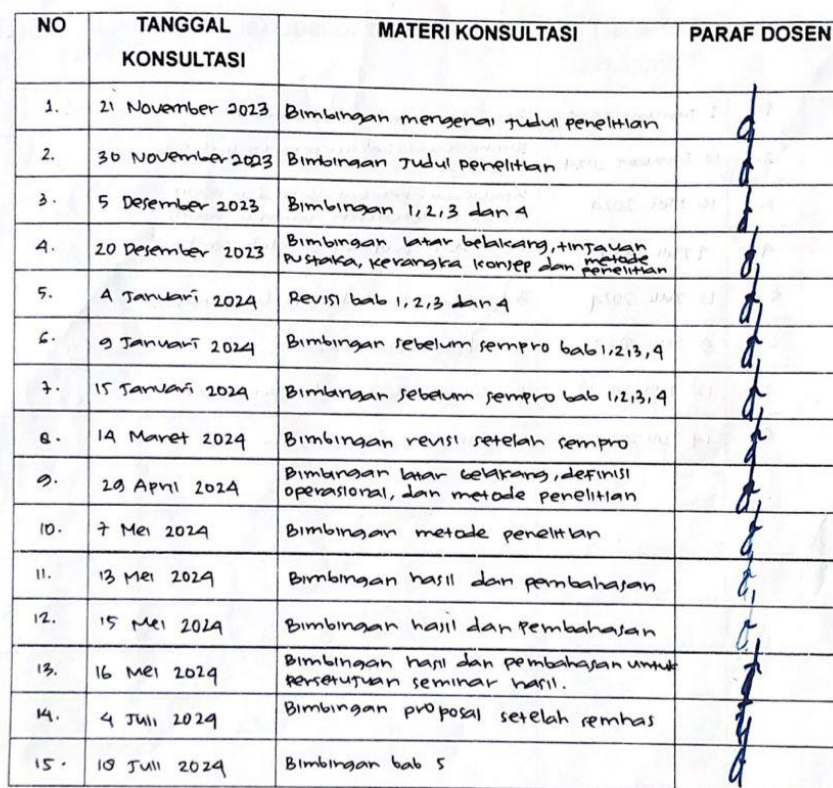 NO TANGGAL KONSULTASI MATERI KONSULTASI PARAF DOSEN
1. 21 November 2023 Bimbingan mengenai Judul penelitian
2. 30 November 2023 Bimbingan Judul Penelitian
3. 5 Desember 2023 Bimbingan 1,2,3 dan 4
4. 20 Desember 2023 Bimbingan latar belakang, tinjauan
pustaka, kerangka konsep dan metode
penelitian
5. 4 Januari 2024 Revisi bab 1,2,3 dan 4
6. 9 Januari 2024 Bimbingan sebelum sempro bab 1,2,3,4
7. 15 Januari 2024 Bimbangan sebelum sempro bab 1,2,3,4
8. 14 Maret 2024 Bimbingan revisi setelah sempro
9. 29 April 2024 Bimbingan latar belakang, definisi
operasional, dan metode penelitian
10. 7 Mei 2024 Bimbingan metode penelitian
11. 13 Mei 2024 Bimbingan hasil dan pembahasan
12. 15 Mei 2024 Bimbingan hasil dan pembahasan
13. 16 Mei 2024 Bimbingan hasil dan pembahasan untuk
persetujuan seminar hasil.
14. 4 Juli 2024 Bimbingan proposal setelah semhas
15. Juli 2024 Bimbingan bab 5